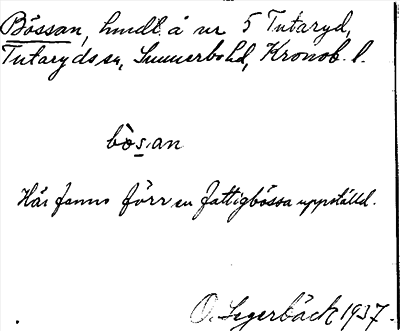 Bössan, hmdl. å nr 5 Tutaryd,
Tutaryds sn, Sunnerbo hd, Kronob. l.
bò̀s̱an
Här fanns förr en fattigbössa uppställd.
O. Segerbäck 1937.